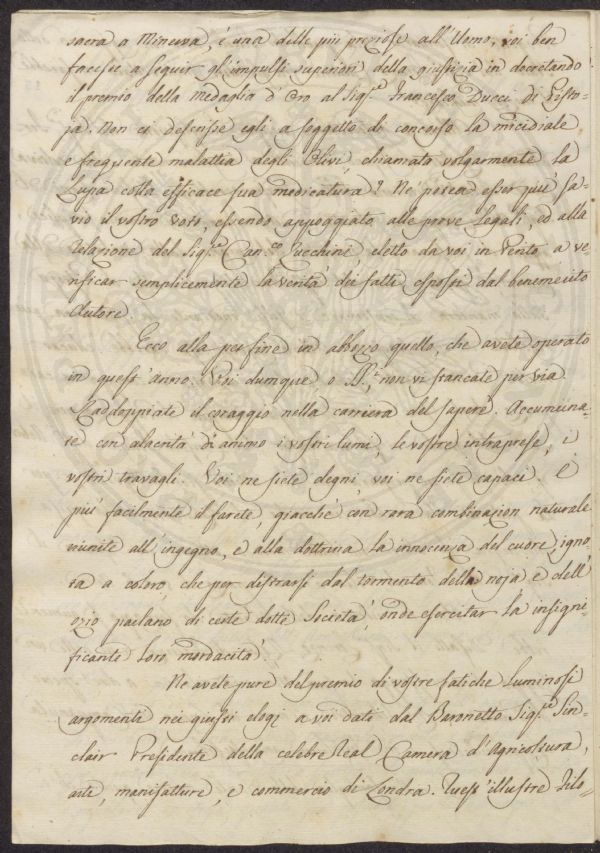 sacra a Minerva, è una delle più preziose all'Uomo, voi ben
faceste a seguir gl'impulsi superiori della giustizia in decretando
il premio della Medaglia d'Oro al Sig.r Francesco Ducci di Pisto-
ja. Non ci descrisse egli a soggetto di concorso la micidiale
e frequente malattia degli Olivi, chiamata volgarmente la
Lupa colla efficace sua medicatura? Ne potea esser più sa-
vio il vostro voto, essendo appoggiato alle prove Legali, ed alla
relazione del Sig.r Can.co Zucchini, eletto da voi in Perito a ve-
rificar semplicemente la verità dei fatti esposti dal benemerito
Autore.
Ecco alla per fine in abbozzo quello, che avete operato
in quest'anno. Voi dunque o AA., non vi stancate per via.
Raddoppiate il coraggio nella carriera del sapere. Accumuna-
te con alacrità di animo i vostri lumi, le vostre intraprese, i
vostri travagli. Voi ne siete degni, voi ne siete capaci. E
più facilmente il farete, giacchè con rara combinazion naturale
riunite all'ingegno, e alla dottrina la innocenza del cuore, igno-
ta a coloro, che per distrarsi dal tormento della noja e dell'
ozio parlano di ceste dotte Società, onde esercitar la insigni-
ficante loro mordacità.
Ne avete pure del premio di vostre fatiche luminosi
argomenti nei giusti elogj a voi dati dal Baronetto Sig.r Sin-
clair Presidente della celebre Real Camera d'Agricoltura,
arti, manifatture, e commercio di Londra. Quest'illustre Filo-